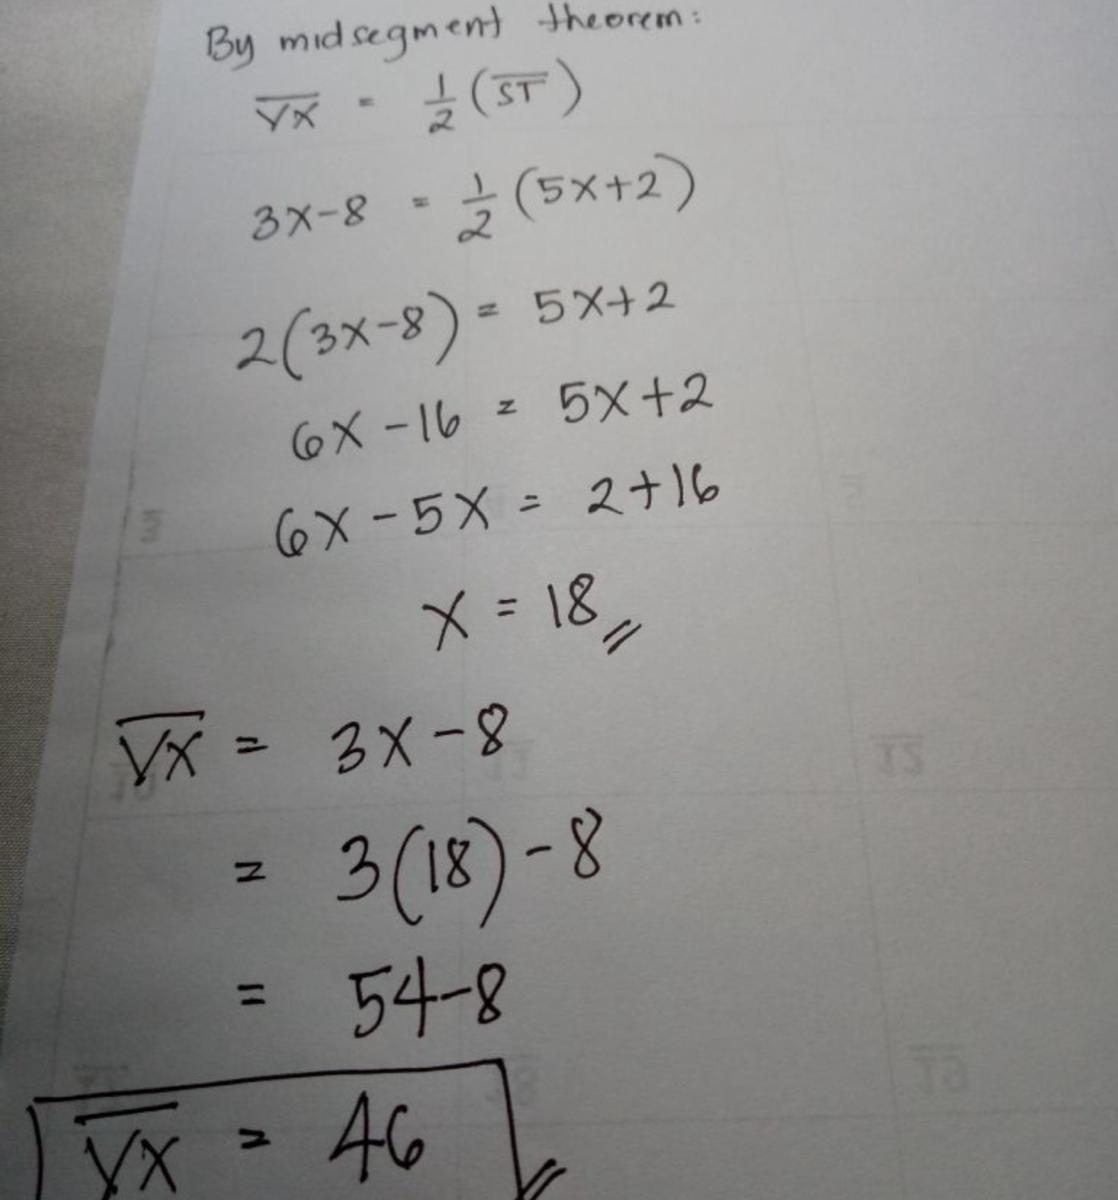 By midsegment theorem:
V̅X̅ = 1/2 (S̅T̅)
3X-8 = 1/2 (5X+2)
2(3X-8) = 5X+2
6X-16 = 5X+2
6X-5X = 2+16
X = 18
V̅X̅ = 3X-8
= 3(18)-8
= 54-8
V̅X̅ = 46